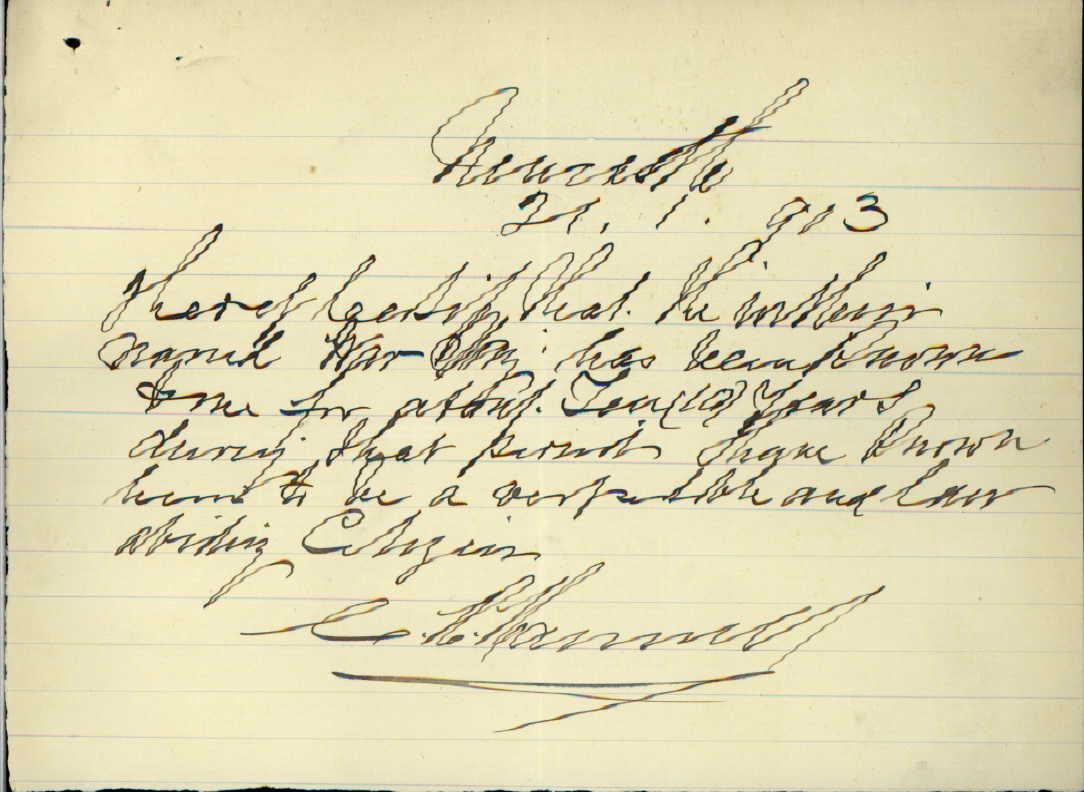 Newcastle
21. 1. 913
I hereby Certify that the within
named War has been known
to me for about Ten (10) Years
during that period I have known
him to be a respectable and law
abiding Citizen
C. H. Hannell